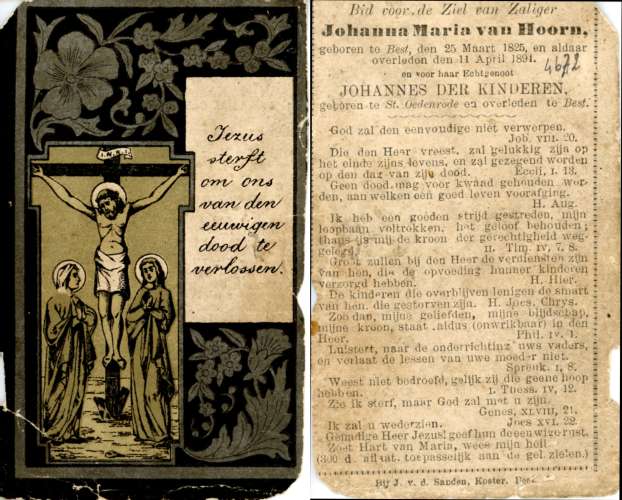 I.N.R.I.
Jezus
sterft
om ons
van den
eeuwigen
dood te
verlossen.
Bid voor de Ziel van Zaliger
Johanna Maria van Hoorn,
geboren te Best, den 25 Maart 1825, en aldaar
overleden den 11 April 1894.
4672
en voor haar Echtgenoot
JOHANNES DER KINDEREN,
geboren te St. Oedenrode en overleden te Best.
God zal den eenvoudige niet verwerpen.
Job. VIII. 20.
Die den Heer vreest, zal gelukkig zijn op
het einde zijns levens, en zal gezegend worden
op den dag van zijne dood. Eccli, 1. 13.
Geen dood mag voor kwaad gehouden wor-
den, aan welken een goed leven voorafging.
H. Aug.
Ik heb een goeden strijd gestreden, mijn
loopbaan voltrokken, het geloof behouden;
thans is mij de kroon der gerechtigheid weg-
gelegd. II. Tim. IV, 7. 8.
Groot zullen bij den Heer de verdiensten zijn
van hen, die de opvoeding hunner kinderen
verzorgd hebben. H. Hier.
De kinderen die overblijven lenigen de smart
van hen, die gestorven zijn. H. Joes. Chrys.
Zoo dan, mijne geliefden, mijne blijdschap,
mijne kroon, staat aldus (onwrikbaar) in den
Heer. Phil. IV. 1.
Luistert, naar de onderrichting uws vaders,
en verlaat de lessen van uwe moeder niet.
Spreuk. 1, 8.
Weest niet bedroefd, gelijk zij die geene hoop
hebben. 1. Thess. IV, 12.
Zie ik sterf, maar God zal met u zijn.
Genes, XLVIII, 21.
Ik zal u wederzien. Joes XVI. 22.
Genadige Heer Jezus! geef hun de eeuwige rust.
Zoet Hart van Maria, wees mijn heil.
(300 d. aflaat. toepasselijk aan de gel. zielen.)
Bij J. v. d. Sanden, Koster. Best